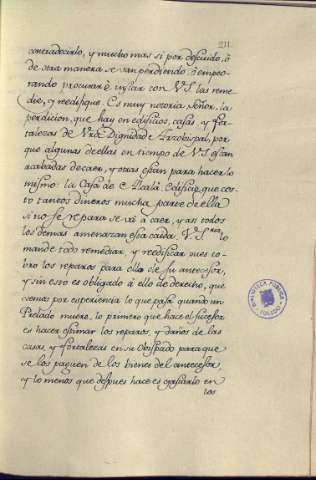 211
contradecirlo, y mucho mas si por descuido, ò
de otra manera se van perdiendo, ò empeo-
rando procurar è instar con V.S. las reme-
die, y reedifique. Es muy notoria Señor, la
perdicion, que hay en edificios, casas, y for-
talezas de Vra Dignidad Arzobispal, por
que algunas de ellas en tiempo de V.S. estàn
acabadas de caer, y otras estàn para hacer lo
mismo: la Casa de Alcalà Edificio, que cos-
to tantos dineros mucha parte de ella
si no se repara se và à caer, y asi todos
los demas amenazan esta caida. V.S. lo
mande todo remediar, y reedificar pues co-
brò los reparos para ello de su antecesor,
y sin esto es obligado à ello de derecho, que
vemos por experiencia lo que pasa quando un
Prelado muere, lo primero que hace el sucesor
es hacer estimar los reparos, y daños de las
casas, y fortalezas en su Obispado para que
se los paguen de los bienes del antecesor,
y lo menos que despues hace es gastarlo en
los
BIBLIOTECA PUBLICA
TOLEDO